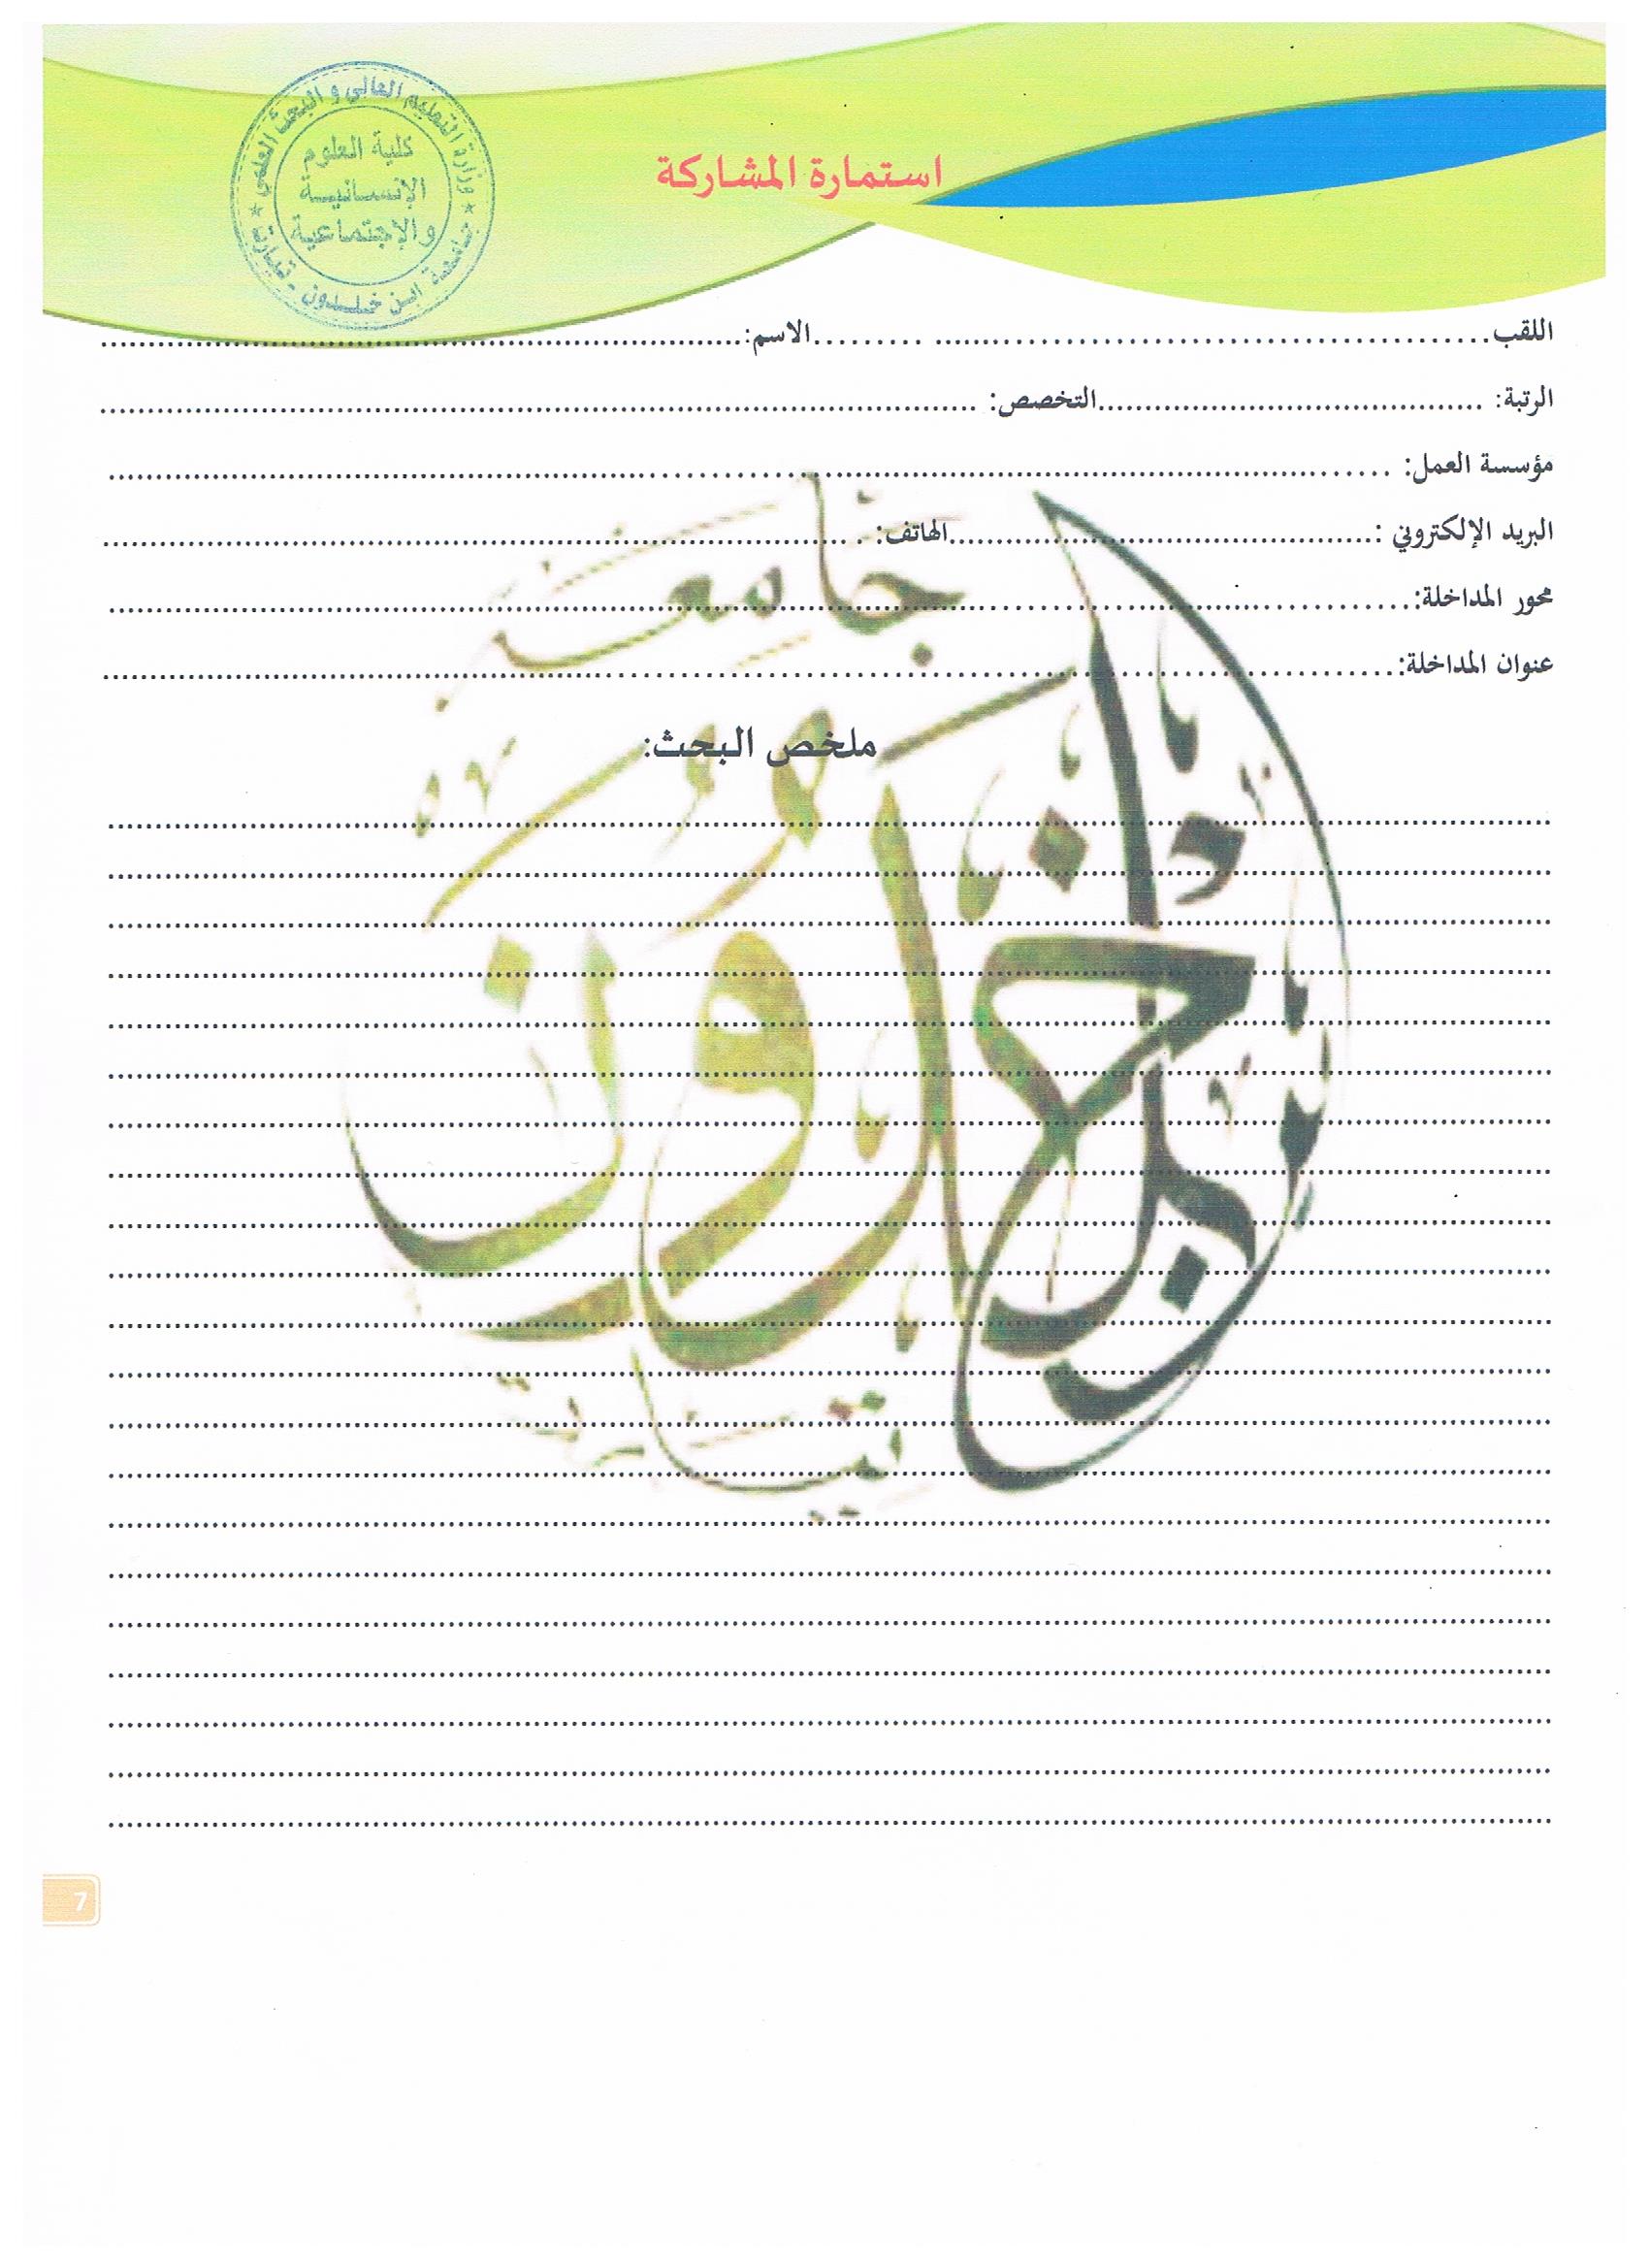 وزارة التعليم العالي و البحث العلمي
كلية العلوم
الإنسانية
والإجتماعية
جامعة ابن خلدون - تيارت
استمارة المشاركة
اللقب......................................................... .........الاسم:....................................................................
الرتبة: .........................................التخصص: .............................................................................................
مؤسسة العمل: .........................................................................................................................................
البريد الإلكتروني :.............................................الهاتف: .................................................................................
محور المداخلة:.........................................................................................................................................
عنوان المداخلة:.........................................................................................................................................
ملخص البحث:
جامعة
ابن خلدون
تيارت
7